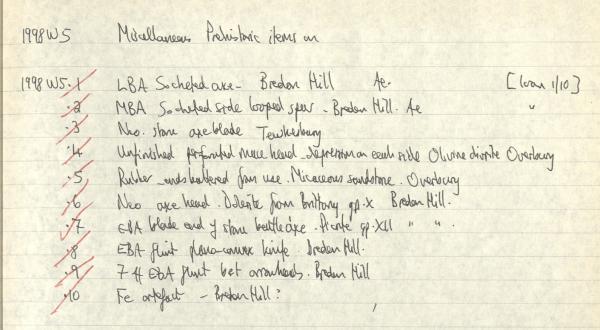 1998 W5 Miscellaneous Prehistoric items on
1998 W5.1 LBA Socketed axe - Bredon Hill Ae. [Loan 1/10]
.2 MBA Socketed side looped spear - Bredon Hill. Ae "
.3 Neo. stone axe blade Tewkesbury
.4 Unfinished perforated mace head - depression on each side Olivine diorite Overbury
.5 Rubber - ends battered from use. Micaceous sandstone. Overbury
.6 Neo axe head. Dolerite from Brittany gp. X Bredon Hill.
.7 EBA blade end of stone battle axe. Picrite gp. XII " " .
.8 EBA flint plano-convex knife. Bredon Hill.
.9 7 ff EBA flint b&t arrowheads. Bredon Hill
.10 Fe artefact - Bredon Hill?